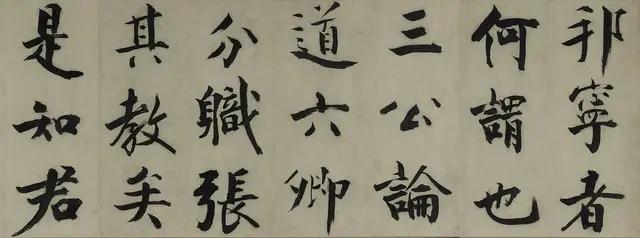 邦寧者
何謂也
三公論
道六卿
分軄張
其教矣
是知君